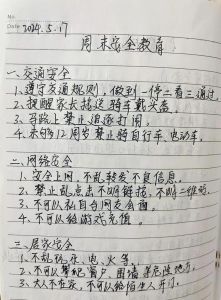 No.
Date 2024.5.17
周末安全教育
一、交通安全
1、遵守交通规则，做到一停二看三通过。
2、提醒家长接送骑车戴头盔。
3、马路上禁止追逐打闹。
4、未满12周岁禁止骑自行车、电动车。
二、网络安全
1、安全上网，不乱转发不良信息。
2、禁止乱点击不明链接，不明二维码。
3、不可以私自和网友会面。
4、不可以给游戏充值。
三、居家安全
1、不乱玩水、电、火等。
2、不可以攀爬窗户、围墙等危险地方。
3、大人不在家，不可以给陌生人开门。